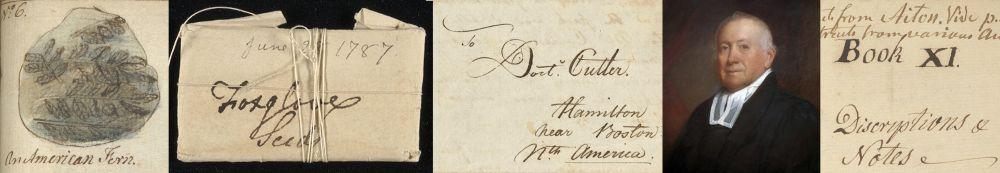 No. 6.
An American Fern.
June 2 1787
Foxglove
Seed
To
Doctr. Cutler.
Hamilton
near Boston
Nth America.
from Aiton. Vide p.
from various
Book XI.
Discriptions &
Notes